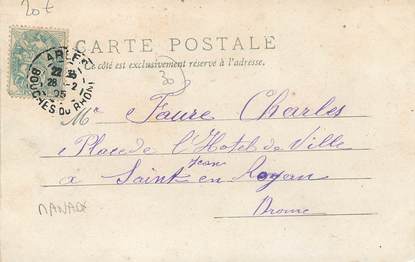 20 €
CARTE POSTALE
Ce côté est exclusivement réservé à l'adresse.
ARLES
22 35
28 -2
05
BOUCHES DU RHONE
30
Mr Faure Charles
Place de l'Hotel de Ville
Jean
à Saint en Royan
Drome
MANADE